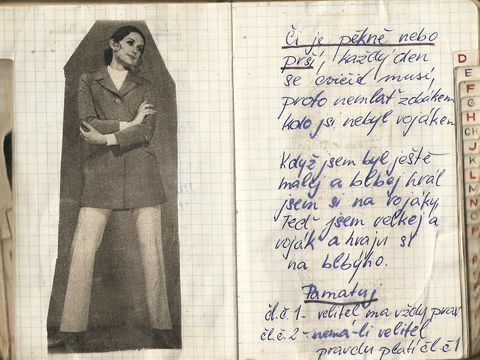 Či je pěkně nebo
prší, každý den
se cvičid musí,
proto nemlať zobákem
kdo jsi nebyl vojákem
Když jsem byl ještě
malej a blbej hrál
jsem si na vojáky
Teď jsem velkej a
voják a hraju si
na blbýho.
Pamatuj
čl.č 1 - velitel ma vždy prav
čl.č 2 - nemá-li velitel
pravdu platí čl.č 1
D
E
F
G
H
CH
J
K
L
M
N
O
P